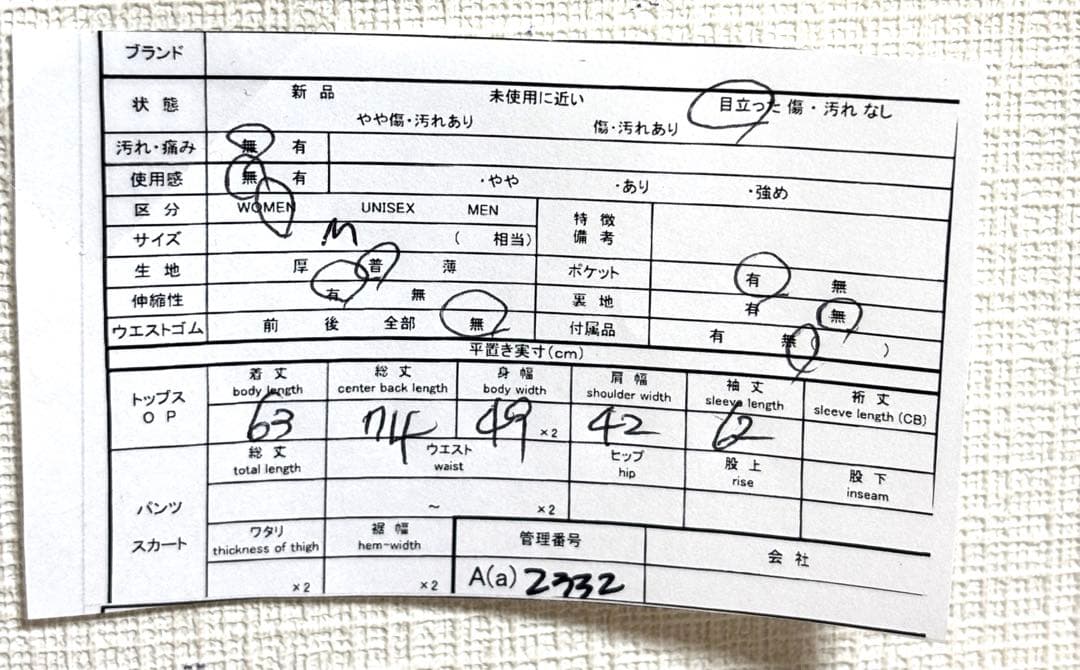 ブランド
状態 新品 未使用に近い 目立った傷・汚れなし
やや傷・汚れあり 傷・汚れあり
汚れ・痛み 無 有
使用感 無 有 ・やや ・あり ・強め
区分 WOMEN UNISEX MEN 特徴備考
サイズ M ( 相当)
生地 厚 普 薄 ポケット 有 無
伸縮性 有 無 裏地 有 無
ウエストゴム 前 後 全部 無 付属品 有 無( )
平置き実寸(cm)
トップス OP
着丈 総丈 身幅 肩幅 袖丈 裄丈
body length center back length body width shoulder width sleeve length sleeve length (CB)
63 74 49 ×2 42 62
パンツ スカート
総丈 ウエスト ヒップ 股上 股下
total length waist hip rise inseam
～ ×2
ワタリ 裾幅 管理番号 会社
thickness of thigh hem-width
×2 ×2 A(a) 2332